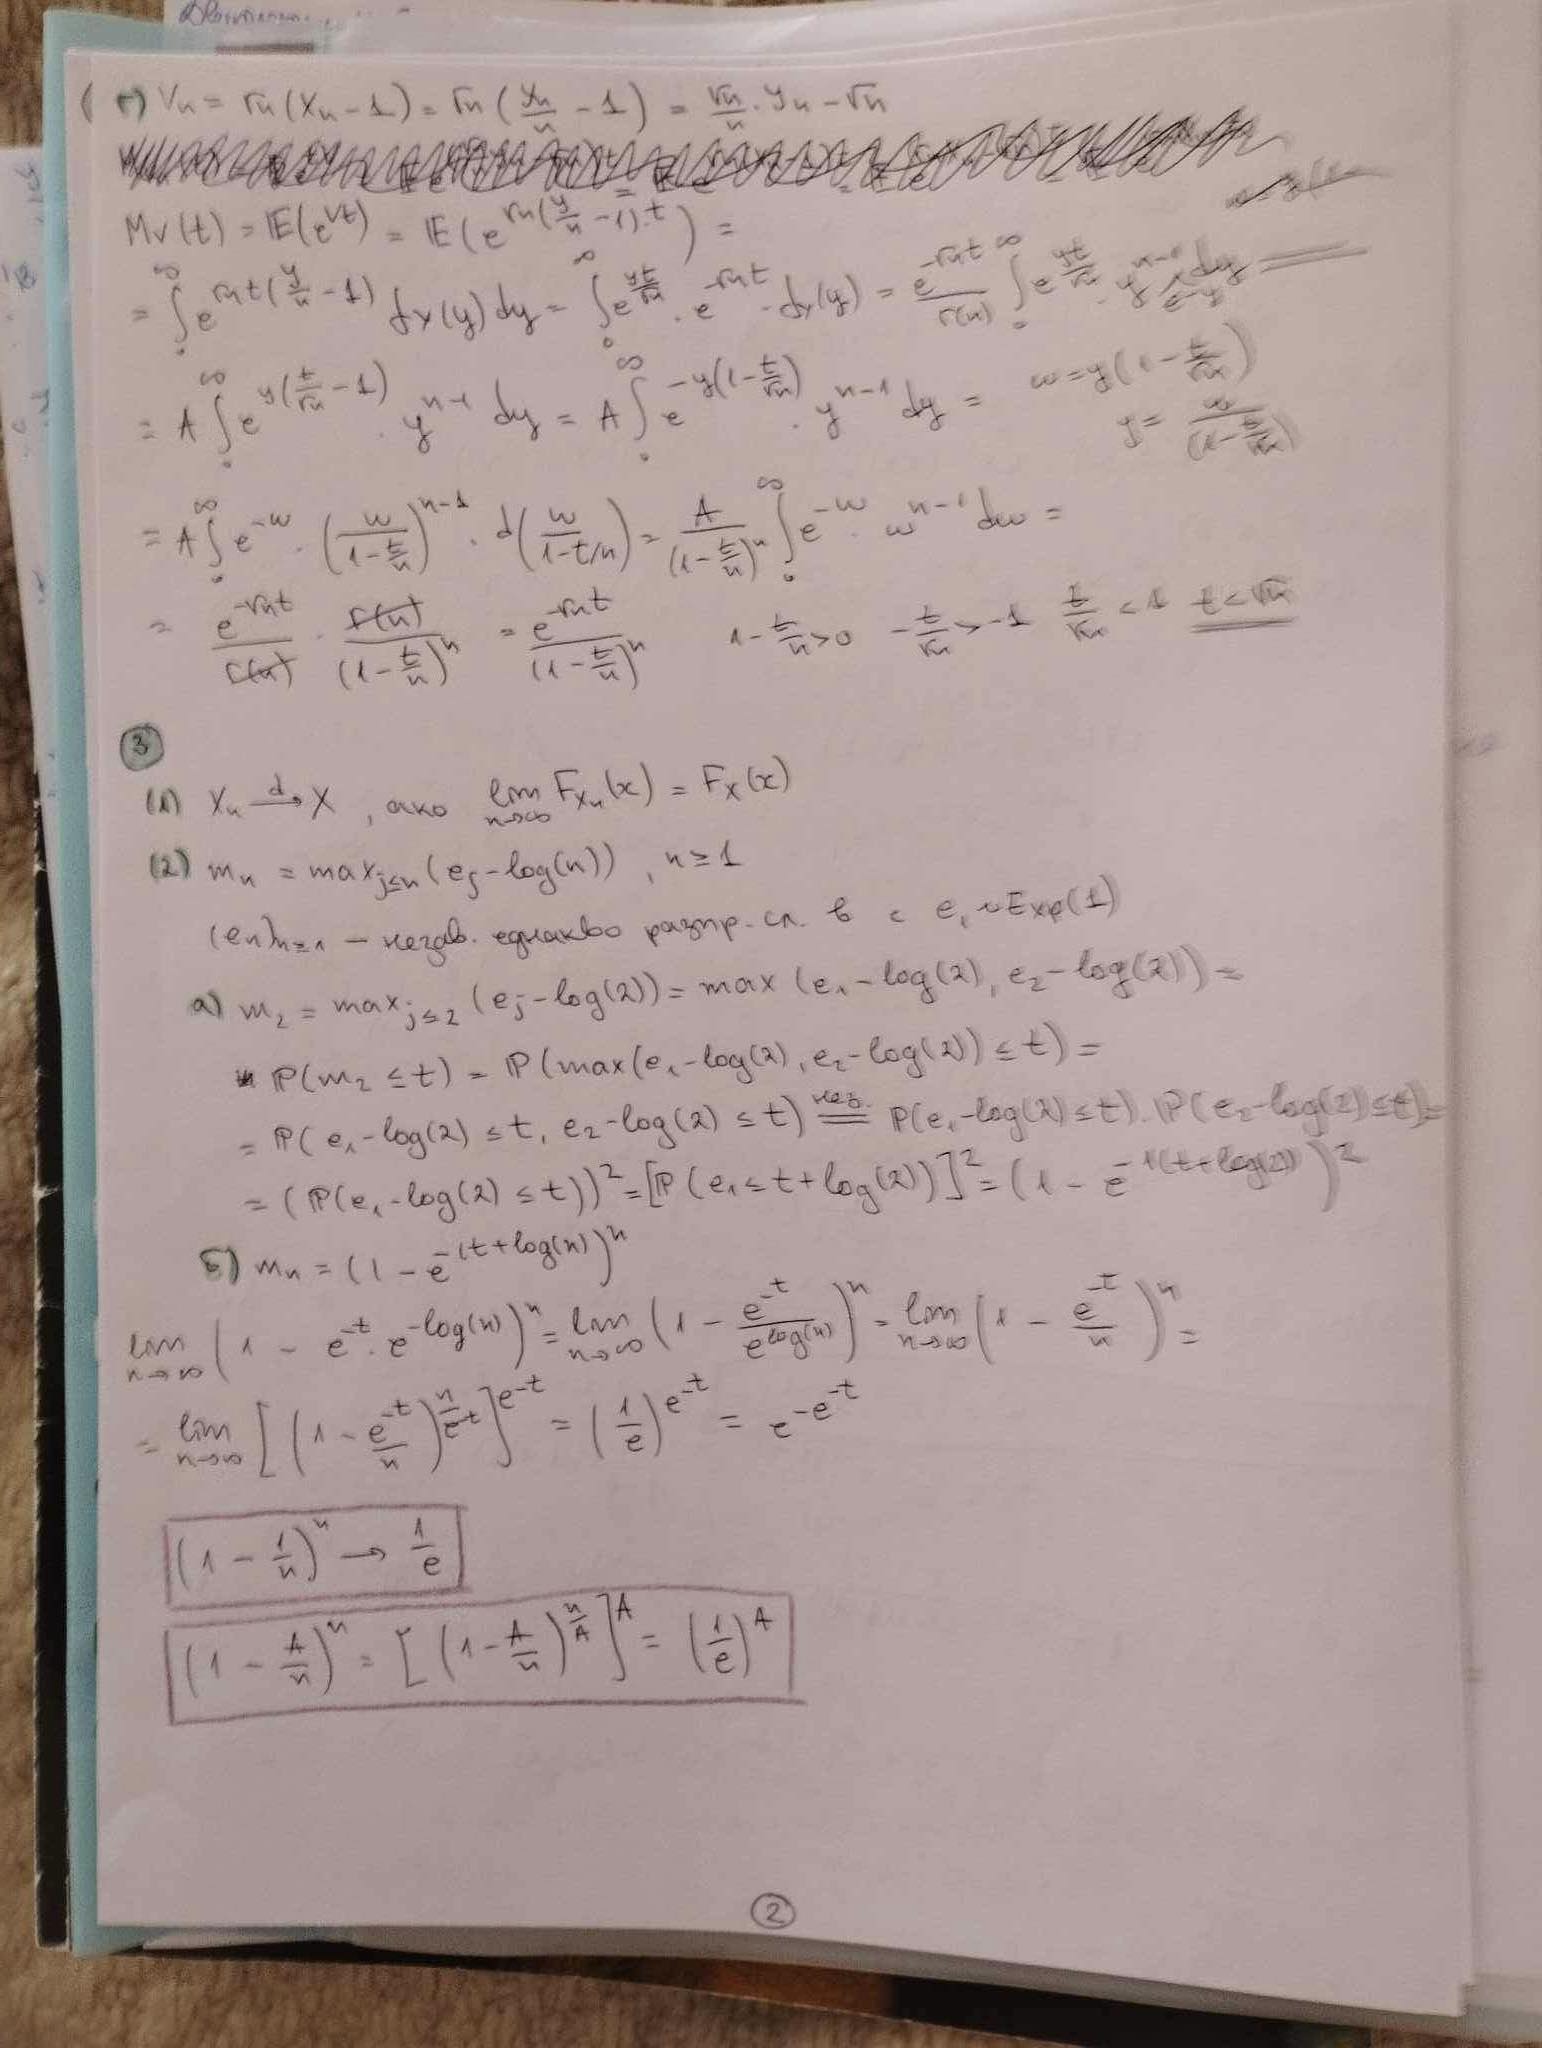 г) Vn = √n (Xn - 1) = √n (Yn/n - 1) = √n/n · Yn - √n
Mv(t) = 𝔼(e^{Vt}) = 𝔼(e^{√n(y/n - 1)·t}) =
= ∫_0^∞ e^{√n t(y/n - 1)} f_Y(y) dy = ∫_0^∞ e^{yt/√n} · e^{-√n t} · f_Y(y) = e^{-√n t}/Γ(n) ∫_0^∞ e^{yt/√n} · y^{n-1} e^{-y} dy
= A ∫_0^∞ e^{y(t/√n - 1)} · y^{n-1} dy = A ∫_0^∞ e^{-y(1 - t/√n)} · y^{n-1} dy = w = y(1 - t/√n)
y = w/(1 - t/√n)
= A ∫_0^∞ e^{-w} · (w/(1 - t/n))^{n-1} · d(w/(1 - t/n)) = A/(1 - t/n)^n ∫_0^∞ e^{-w} · w^{n-1} dw =
= e^{-√n t}/Γ(n) · Γ(n)/(1 - t/n)^n = e^{-√n t}/(1 - t/n)^n 1 - t/n > 0 -t/√n > -1 t/√n < 1 t < √n
3
(1) Xn →^d X, ако lim_{n→∞} F_{Xn}(x) = F_X(x)
(2) mn = max_{j≤n} (ej - log(n)), n ≥ 1
(en)n≥1 - незав. еднакво разпр. сл. в с e1 ~ Exp(1)
а) m2 = max_{j≤2} (ej - log(2)) = max (e1 - log(2), e2 - log(2)) =
ℙ(m2 ≤ t) = ℙ(max(e1 - log(2), e2 - log(2)) ≤ t) =
= ℙ(e1 - log(2) ≤ t, e2 - log(2) ≤ t) =^{нез.} ℙ(e1 - log(2) ≤ t) · ℙ(e2 - log(2) ≤ t) =
= (ℙ(e1 - log(2) ≤ t))^2 = [ℙ(e1 ≤ t + log(2))]^2 = (1 - e^{-1(t + log(2))})^2
б) mn = (1 - e^{-(t + log(n)})^n
lim_{n→∞} (1 - e^{-t} · e^{-log(n)})^n = lim_{n→∞} (1 - e^{-t}/e^{log(n)})^n = lim_{n→∞} (1 - e^{-t}/n)^n =
= lim_{n→∞} [(1 - e^{-t}/n)^{n/e^{-t}}]^{e^{-t}} = (1/e)^{e^{-t}} = e^{-e^{-t}}
(1 - 1/n)^n → 1/e
(1 - A/n)^n = [(1 - A/n)^{n/A}]^A = (1/e)^A
2